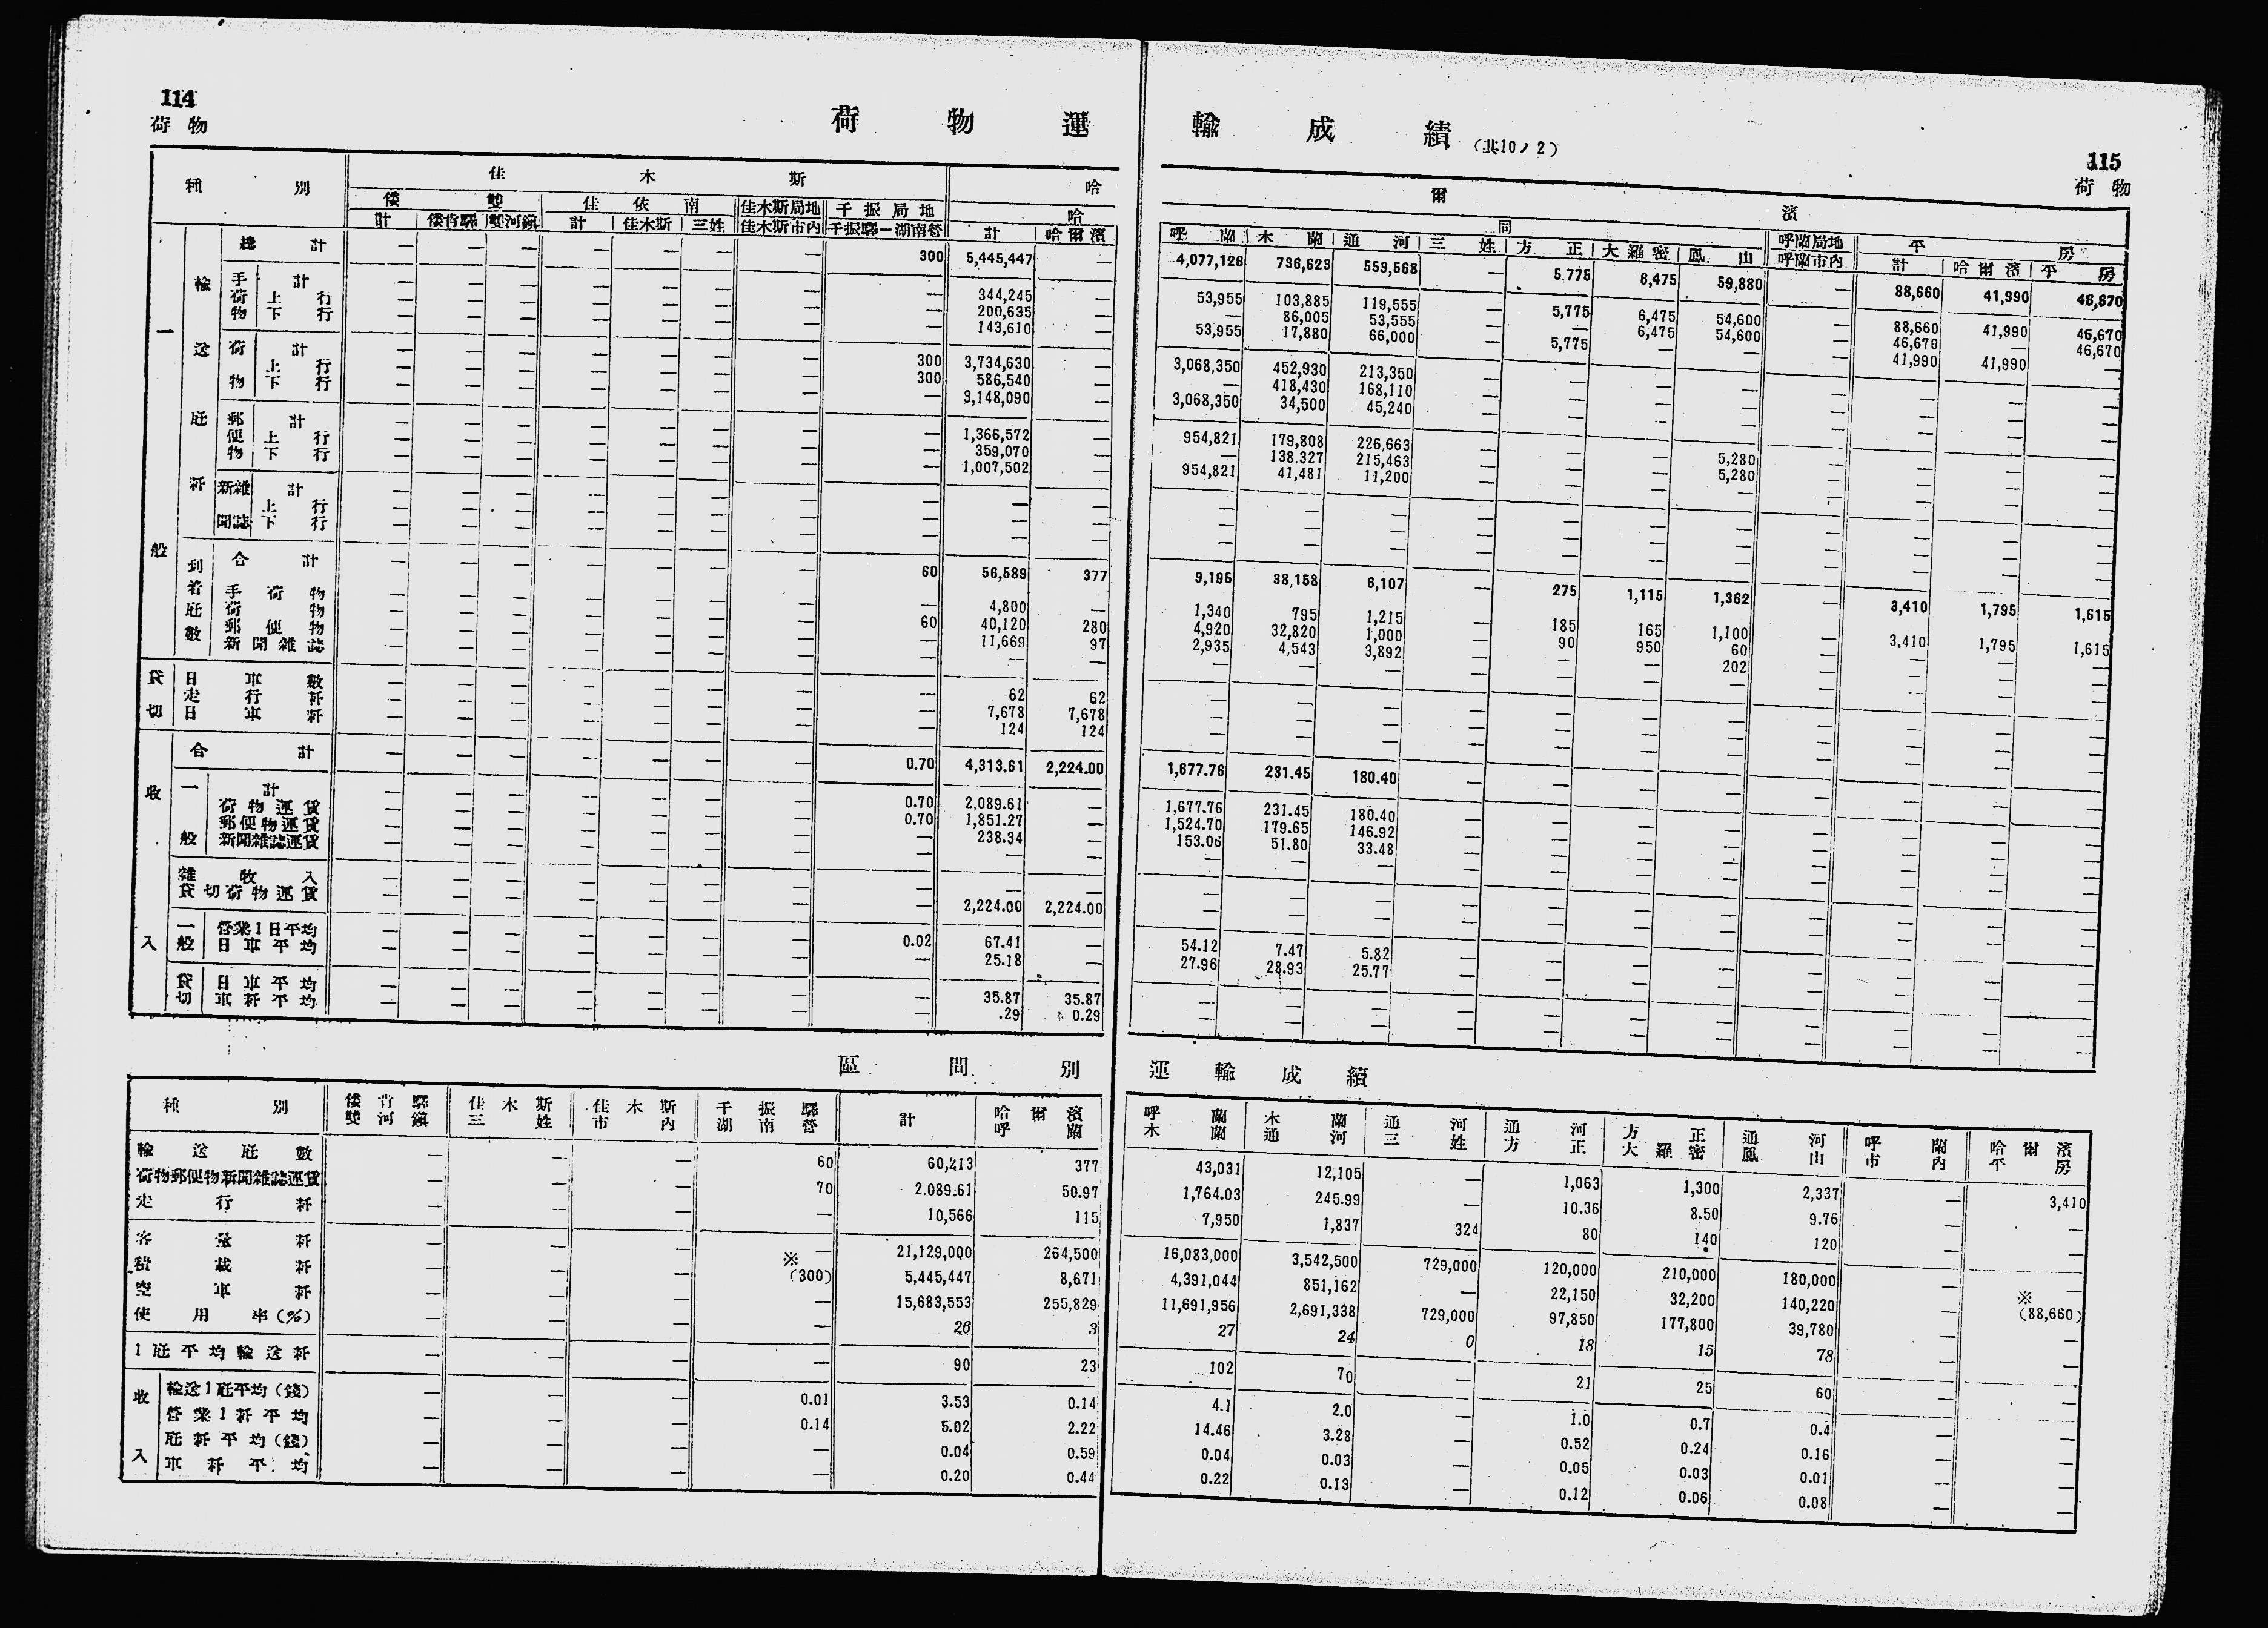 114
荷物
荷物運輸成績 (其10ノ2)
115
荷物
種別 佳木斯 哈爾濱
倭雙 佳依南 佳木斯局地 千振局地 哈同 呼蘭局地 平房
計 倭肯驛 雙河鎮 計 佳木斯 三姓 佳木斯市內 千振驛—湖南營 計 哈爾濱 呼蘭 木蘭 通河 三姓 方正 大羅密 鳳山 呼蘭市內 計 哈爾濱 平房
一般
輸送瓩粁
總計 — — — — — — — 300 5,445,447 — 4,077,126 736,623 559,568 — 5,775 6,475 59,880 — 88,660 41,990 46,670
手荷物 計 — — — — — — — — 344,245 — 53,955 103,885 119,555 — 5,775 6,475 54,600 — 88,660 41,990 46,670
上行 — — — — — — — — 200,635 — — 86,005 53,555 — — 6,475 54,600 — 46,670 — 46,670
下行 — — — — — — — — 143,610 — 53,955 17,880 66,000 — 5,775 — — — 41,990 41,990 —
荷物 計 — — — — — — — 300 3,734,630 — 3,068,350 452,930 213,350 — — — — — — — —
上行 — — — — — — — 300 586,540 — — 418,430 168,110 — — — — — — — —
下行 — — — — — — — — 3,148,090 — 3,068,350 34,500 45,240 — — — — — — — —
郵便物 計 — — — — — — — — 1,366,572 — 954,821 179,808 226,663 — — — 5,280 — — — —
上行 — — — — — — — — 359,070 — — 138.327 215,463 — — — 5,280 — — — —
下行 — — — — — — — — 1,007,502 — 954,821 41,481 11,200 — — — — — — — —
新聞雜誌 計 — — — — — — — — — — — — — — — — — — — — —
上行 — — — — — — — — — — — — — — — — — — — — —
下行 — — — — — — — — — — — — — — — — — — — — —
到着瓩數
合計 — — — — — — — 60 56,589 377 9,195 38,158 6,107 — 275 1,115 1,362 — 3,410 1,795 1,615
手荷物 — — — — — — — — 4,800 — 1,340 795 1,215 — 185 165 1,100 — 3,410 1,795 1,615
荷物 — — — — — — — 60 40,120 280 4,920 32,820 1,000 — 90 950 60 — — — —
郵便物 — — — — — — — — 11,669 97 2,935 4,543 3,892 — — — 202 — — — —
新聞雜誌 — — — — — — — — — — — — — — — — — — — — —
貸切
日車數 — — — — — — — — 62 62 — — — — — — — — — — —
走行粁 — — — — — — — — 7,678 7,678 — — — — — — — — — — —
日車粁 — — — — — — — — 124 124 — — — — — — — — — — —
收入
合計 — — — — — — — 0.70 4,313.61 2,224.00 1,677.76 231.45 180.40 — — — — — — — —
一般 計 — — — — — — — 0.70 2,089.61 — 1,677.76 231.45 180.40 — — — — — — — —
荷物運賃 — — — — — — — 0.70 1,851.27 — 1,524.70 179.65 146.92 — — — — — — — —
郵便物運賃 — — — — — — — — 238.34 — 153.06 51.80 33.48 — — — — — — — —
新聞雜誌運賃 — — — — — — — — — — — — — — — — — — — — —
雜收入 — — — — — — — — — — — — — — — — — — — — —
貸切荷物運賃 — — — — — — — — 2,224.00 2,224.00 — — — — — — — — — — —
一般 營業1日平均 — — — — — — — 0.02 67.41 — 54.12 7.47 5.82 — — — — — — — —
日車平均 — — — — — — — — 25.18 — 27.96 28.93 25.77 — — — — — — — —
貸切 日車平均 — — — — — — — — 35.87 35.87 — — — — — — — — — — —
車粁平均 — — — — — — — — .29 0.29 — — — — — — — — — — —
區間別運輸成績
種別 倭肯驛雙河鎮 佳木斯三姓 佳木斯市內 千振驛湖南營 計 哈爾濱呼蘭 呼蘭木蘭 木蘭通河 通河三姓 通河方正 方正大羅密 通河鳳山 呼蘭市內 哈爾濱平房
輸送瓩數 — — — 60 60,213 377 43,031 12,105 — 1,063 1,300 2,337 — 3,410
荷物郵便物新聞雜誌運賃 — — — 70 2.089.61 50.97 1,764.03 245.99 — 10.36 8.50 9.76 — —
走行粁 — — — — 10,566 115 7,950 1,837 324 80 140 120 — —
客量粁 — — — — 21,129,000 264,500 16,083,000 3,542,500 729,000 120,000 210,000 180,000 — —
積載粁 — — — ※(300) 5,445,447 8,671 4,391,044 851,162 — 22,150 32,200 140,220 — ※(88,660)
空車粁 — — — — 15,683,553 255,829 11,691,956 2,691,338 729,000 97,850 177,800 39,780 — —
使用率(%) — — — — 26 3 27 24 0 18 15 78 — —
1瓩平均輸送粁 — — — — 90 23 102 70 — 21 25 60 — —
收入
輸送1瓩平均(錢) — — — 0.01 3.53 0.14 4.1 2.0 — 1.0 0.7 0.4 — —
營業1粁平均 — — — 0.14 5.02 2.22 14.46 3.28 — 0.52 0.24 0.16 — —
瓩粁平均(錢) — — — — 0.04 0.59 0.04 0.03 — 0.05 0.03 0.01 — —
車粁平均 — — — — 0.20 0.44 0.22 0.13 — 0.12 0.06 0.08 — —